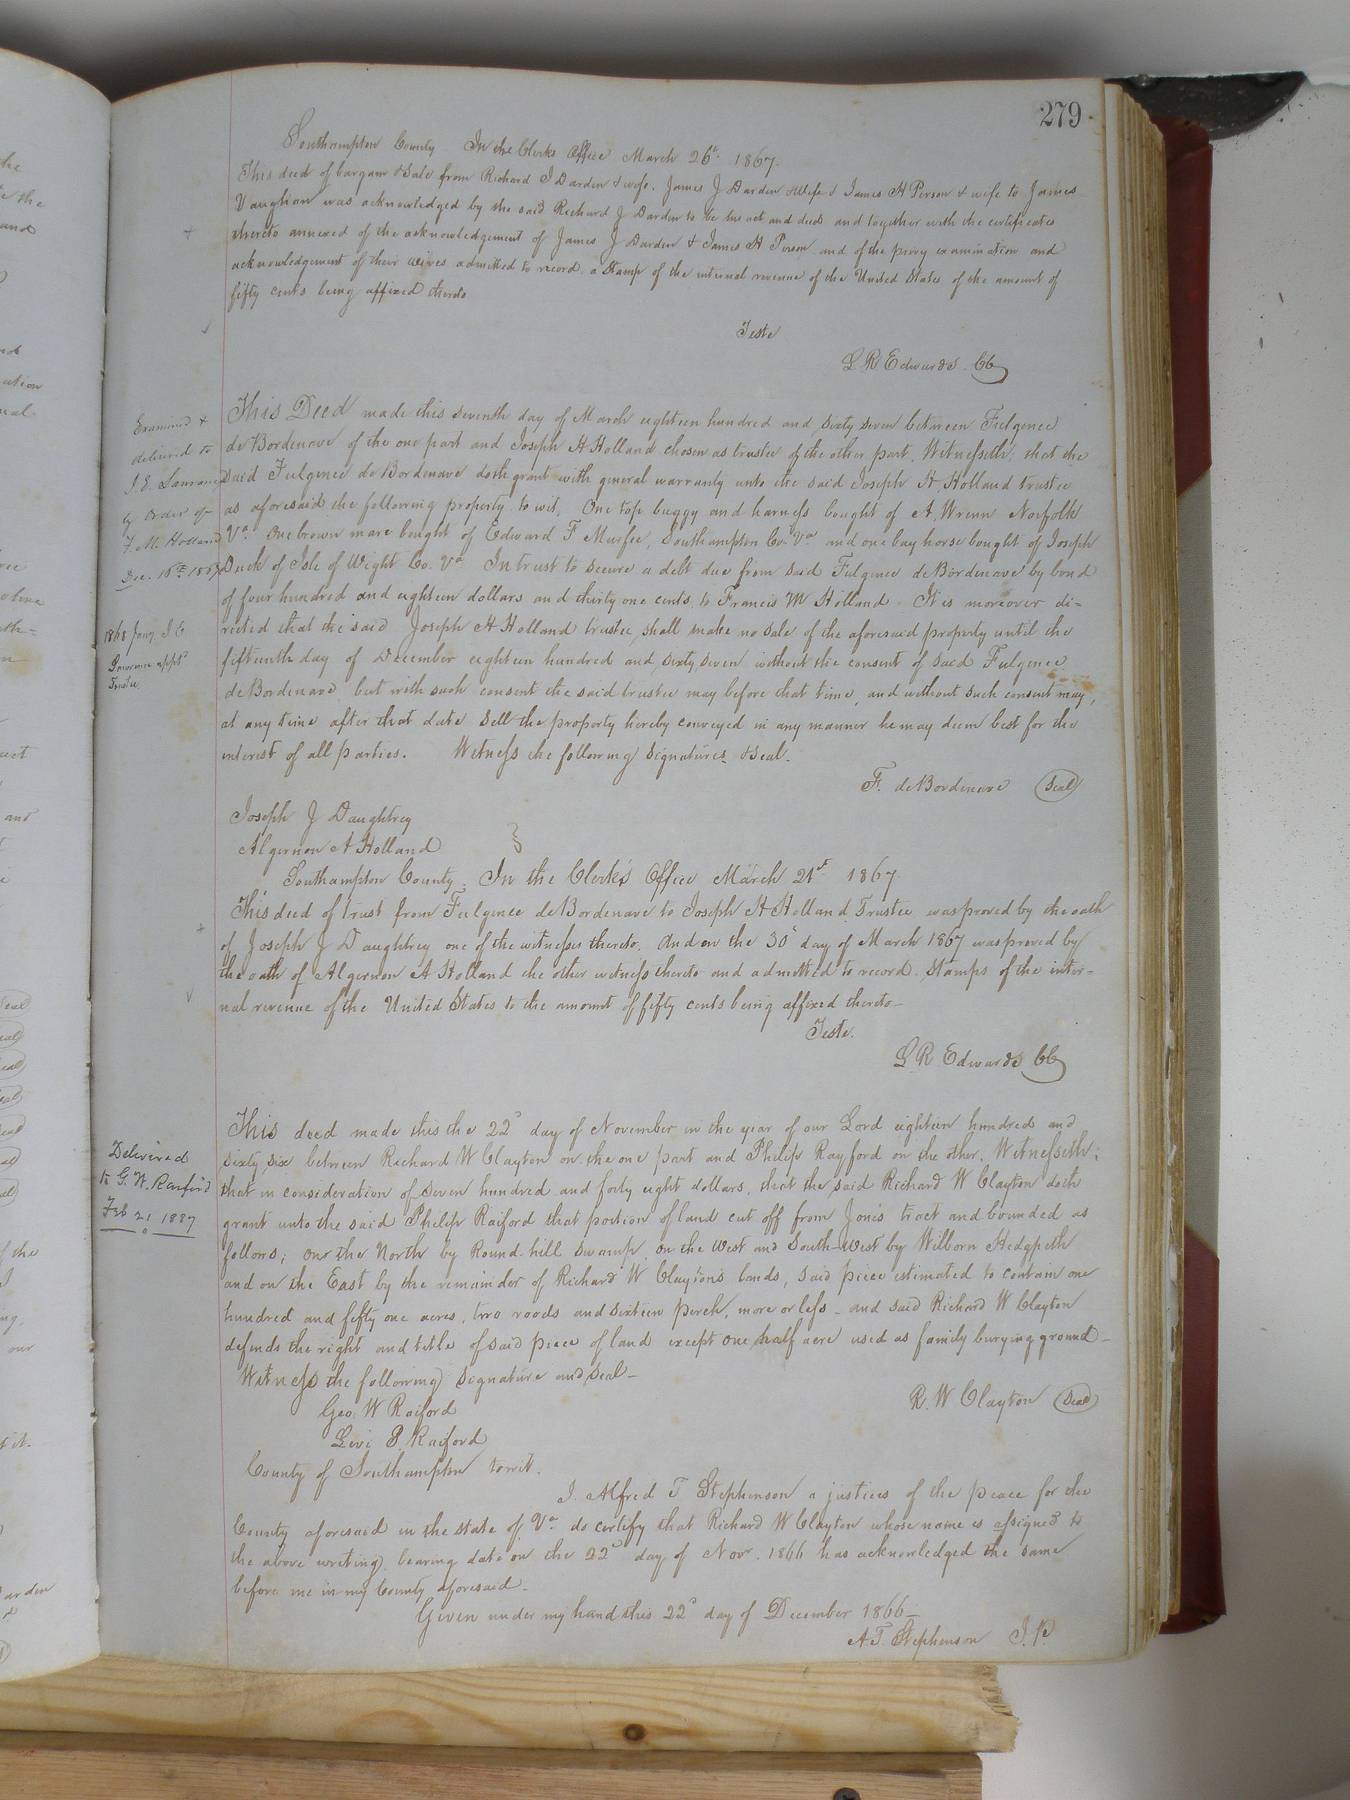 279
Southampton County In the Clerks Office March 26th 1867.
This deed of bargain & Sale from Richard J Darden & wife, James J Darden & wife & James H Person & wife to James
Vaughan was acknowledged by the said Richard J Darden to be his act and deed and together with the certificates
thereto annexed of the acknowledgement of James J Darden & James H Person and of the privy examination and
acknowledgement of their wives admitted to record a Stamp of the internal revenue of the United States of the amount of
fifty cents being affixed thereto
Teste
L R Edwards CC
Examined &
delivered to
J. E. Lawrence
by order of
F. M. Holland
Dec. 18th 1867
1868 Jany J E
Lawrence appt
Trustee
This Deed made this seventh day of March eighteen hundred and sixty seven between Fulgence
deBordenave of the one part and Joseph H Holland chosen as trustee of the other part, Witnesseth, that the
said Fulgence deBordenave doth grant with general warranty unto the said Joseph H. Holland trustee
as aforesaid the following property to wit, One top buggy and harness bought of A. Wrenn Norfolk
Va. One brown mare bought of Edward F Murfee, Southampton Co. Va and one bay horse bought of Joseph
Duck of Isle of Wight Co. Va In trust to secure a debt due from said Fulgence deBordenave by bond
of four hundred and eighteen dollars and thirty one cents, to Francis M Holland. It is moreover di-
rected that the said Joseph H Holland trustee, shall make no sale of the aforesaid property until the
fifteenth day of December eighteen hundred and sixty seven without the consent of said Fulgence
deBordenave but with such consent the said trustee may before that time, and without such consent may,
at any time after that date sell the property hereby conveyed in any manner he may deem best for the
interest of all parties. Witness the following signatures & seal.
F. deBordenave (Seal)
Joseph J Daughtrey
Algernon A Holland
Southampton County. In the Clerk's Office March 21st 1867
This deed of trust from Fulgence deBordenave to Joseph H Holland Trustee was proved by the oath
of Joseph J Daughtrey one of the witnesses thereto. And on the 30th day of March 1867 was proved by
the oath of Algernon A Holland the other witness thereto and admitted to record. Stamps of the inter-
nal revenue of the United States to the amount of fifty cents being affixed thereto-
Teste.
L. R Edwards CC
Delivered
to G. W. Raiford
Feb 21 1887
This deed made this the 22d day of November in the year of our Lord eighteen hundred and
sixty six between Richard W Clayton on the one part and Philip Rayford on the other, Witnesseth;
that in consideration of seven hundred and forty eight dollars, that the said Richard W Clayton doth
grant unto the said Philip Raiford that portion of land cut off from Jones tract and bounded as
follows; on the North by Round hill swamp, on the West and South-West by Wilborn Hedgpeth
and on the East by the remainder of Richard W Clayton's lands, said piece estimated to contain one
hundred and fifty one acres, two roods and sixteen perch, more or less - and said Richard W Clayton
defends the right and title of said piece of land except one half acre used as family burying ground -
Witness the following signature and seal -
R. W Clayton (Seal)
Geo. W Raiford
Levi P. Raiford
County of Southampton to wit.
I. Alfred T Stephenson a justices of the peace for the
County aforesaid in the state of Va do certify that Richard W Clayton whose name is assigned to
the above writing bearing date on the 22d day of Novr. 1866 has acknowledged the same
before me in my County aforesaid -
Given under my hand this 22d day of December 1866 -
A. T. Stephenson J. P.